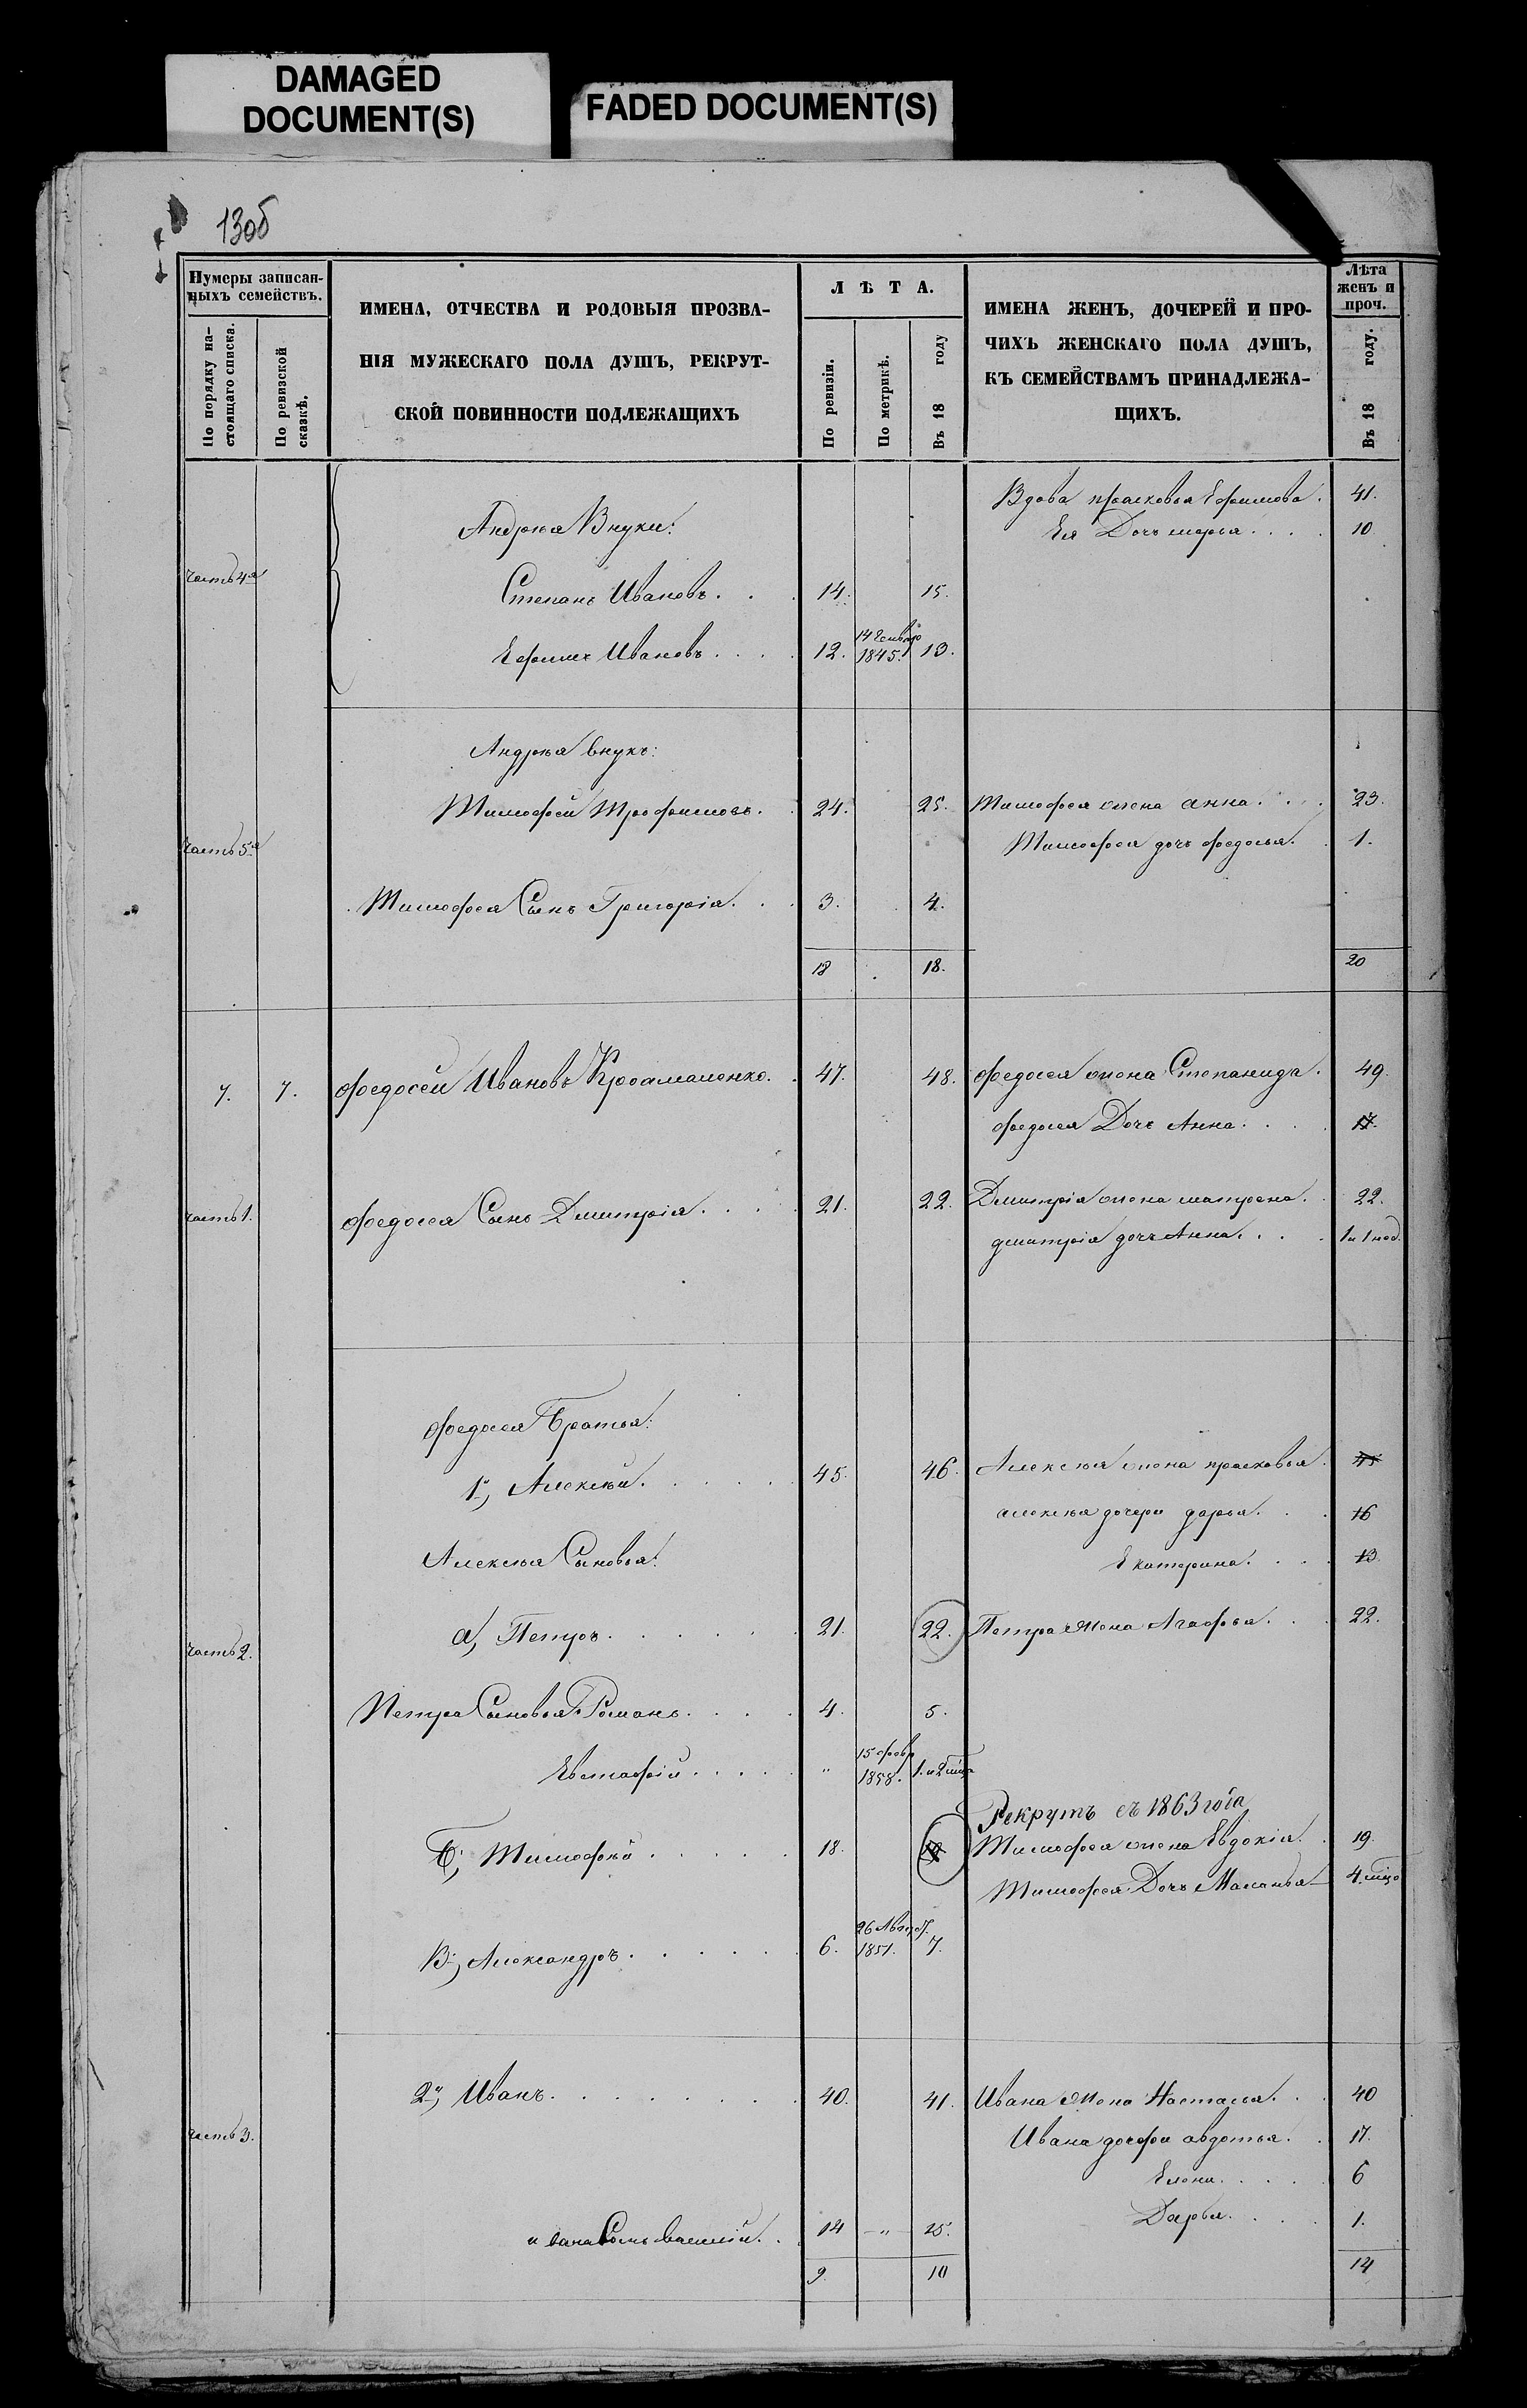 DAMAGED
DOCUMENT(S)
FADED DOCUMENT(S)
130б
Нумеры записан-
ныхъ семействъ.
По порядку на-
стоящаго списка.
По ревизской
сказкѣ.
ИМЕНА, ОТЧЕСТВА И РОДОВЫЯ ПРОЗВА-
НІЯ МУЖЕСКАГО ПОЛА ДУШЪ, РЕКРУТ-
СКОЙ ПОВИННОСТИ ПОДЛЕЖАЩИХЪ
ЛѢТА.
По ревизіи.
По метрикѣ.
Въ 18 году
ИМЕНА ЖЕНЪ, ДОЧЕРЕЙ И ПРО-
ЧИХЪ ЖЕНСКАГО ПОЛА ДУШЪ,
КЪ СЕМЕЙСТВАМЪ ПРИНАДЛЕЖА-
ЩИХЪ.
Лѣта
женъ и
проч.
Въ 18 году.
Вдова прасковья Ефимова. 41.
Андрѣя Внуки:
Ея Дочь марья.... 10.
часть 4я
Степанъ Ивановъ... 14. 15.
Ефимъ Ивановъ.... 12. 1845. 13.
Андрѣя внукъ:
Тимофей Трофимовъ. 24. 25. Тимофея жена анна.... 23.
часть 5я
Тимофея дочь федосья. 1.
Тимофея Сынъ Григорій... 3. 4.
18 18. 20
7. 7. Федосей Ивановъ 47. 48. Федосея жена Степанида. 49.
Федосея Дочь Анна.... 17.
часть 1. Федосея Сынъ Дмитрій.... 21. 22. Дмитрія жена матрена. 22.
дмитрія дочь Анна.... 1 и 1 нед.
Федосея Братья:
1й, Алексѣй...... 45. 46. Алексѣя жена прасковья. 45
алексѣя дочери дарья... 16
Алексѣя Сыновья:
Екатерина.... 13.
часть 2. а, Петръ....... 21. 22. Петра жена Агафья... 22.
Петра Сыновья: Романъ.... 4. 5.
Евстафій..... " 15 февр 1858. 1. и 2 мѣц
Рекрутъ съ 1863 года
Б, Тимофѣй..... 18. Тимофея жена Евдокія. 19.
Тимофея Дочь Маланья 4. мѣц
В, Александръ...... 6. 26 Авгус. 1851. 7.
2й, Иванъ........ 40. 41. Ивана жена Настасья... 40
часть 3.
Ивана дочери авдотья. 17.
Елена..... 6
Дарья.... 1.
ивана Сынъ василій.. 14 — " — 15.
9. 10 14